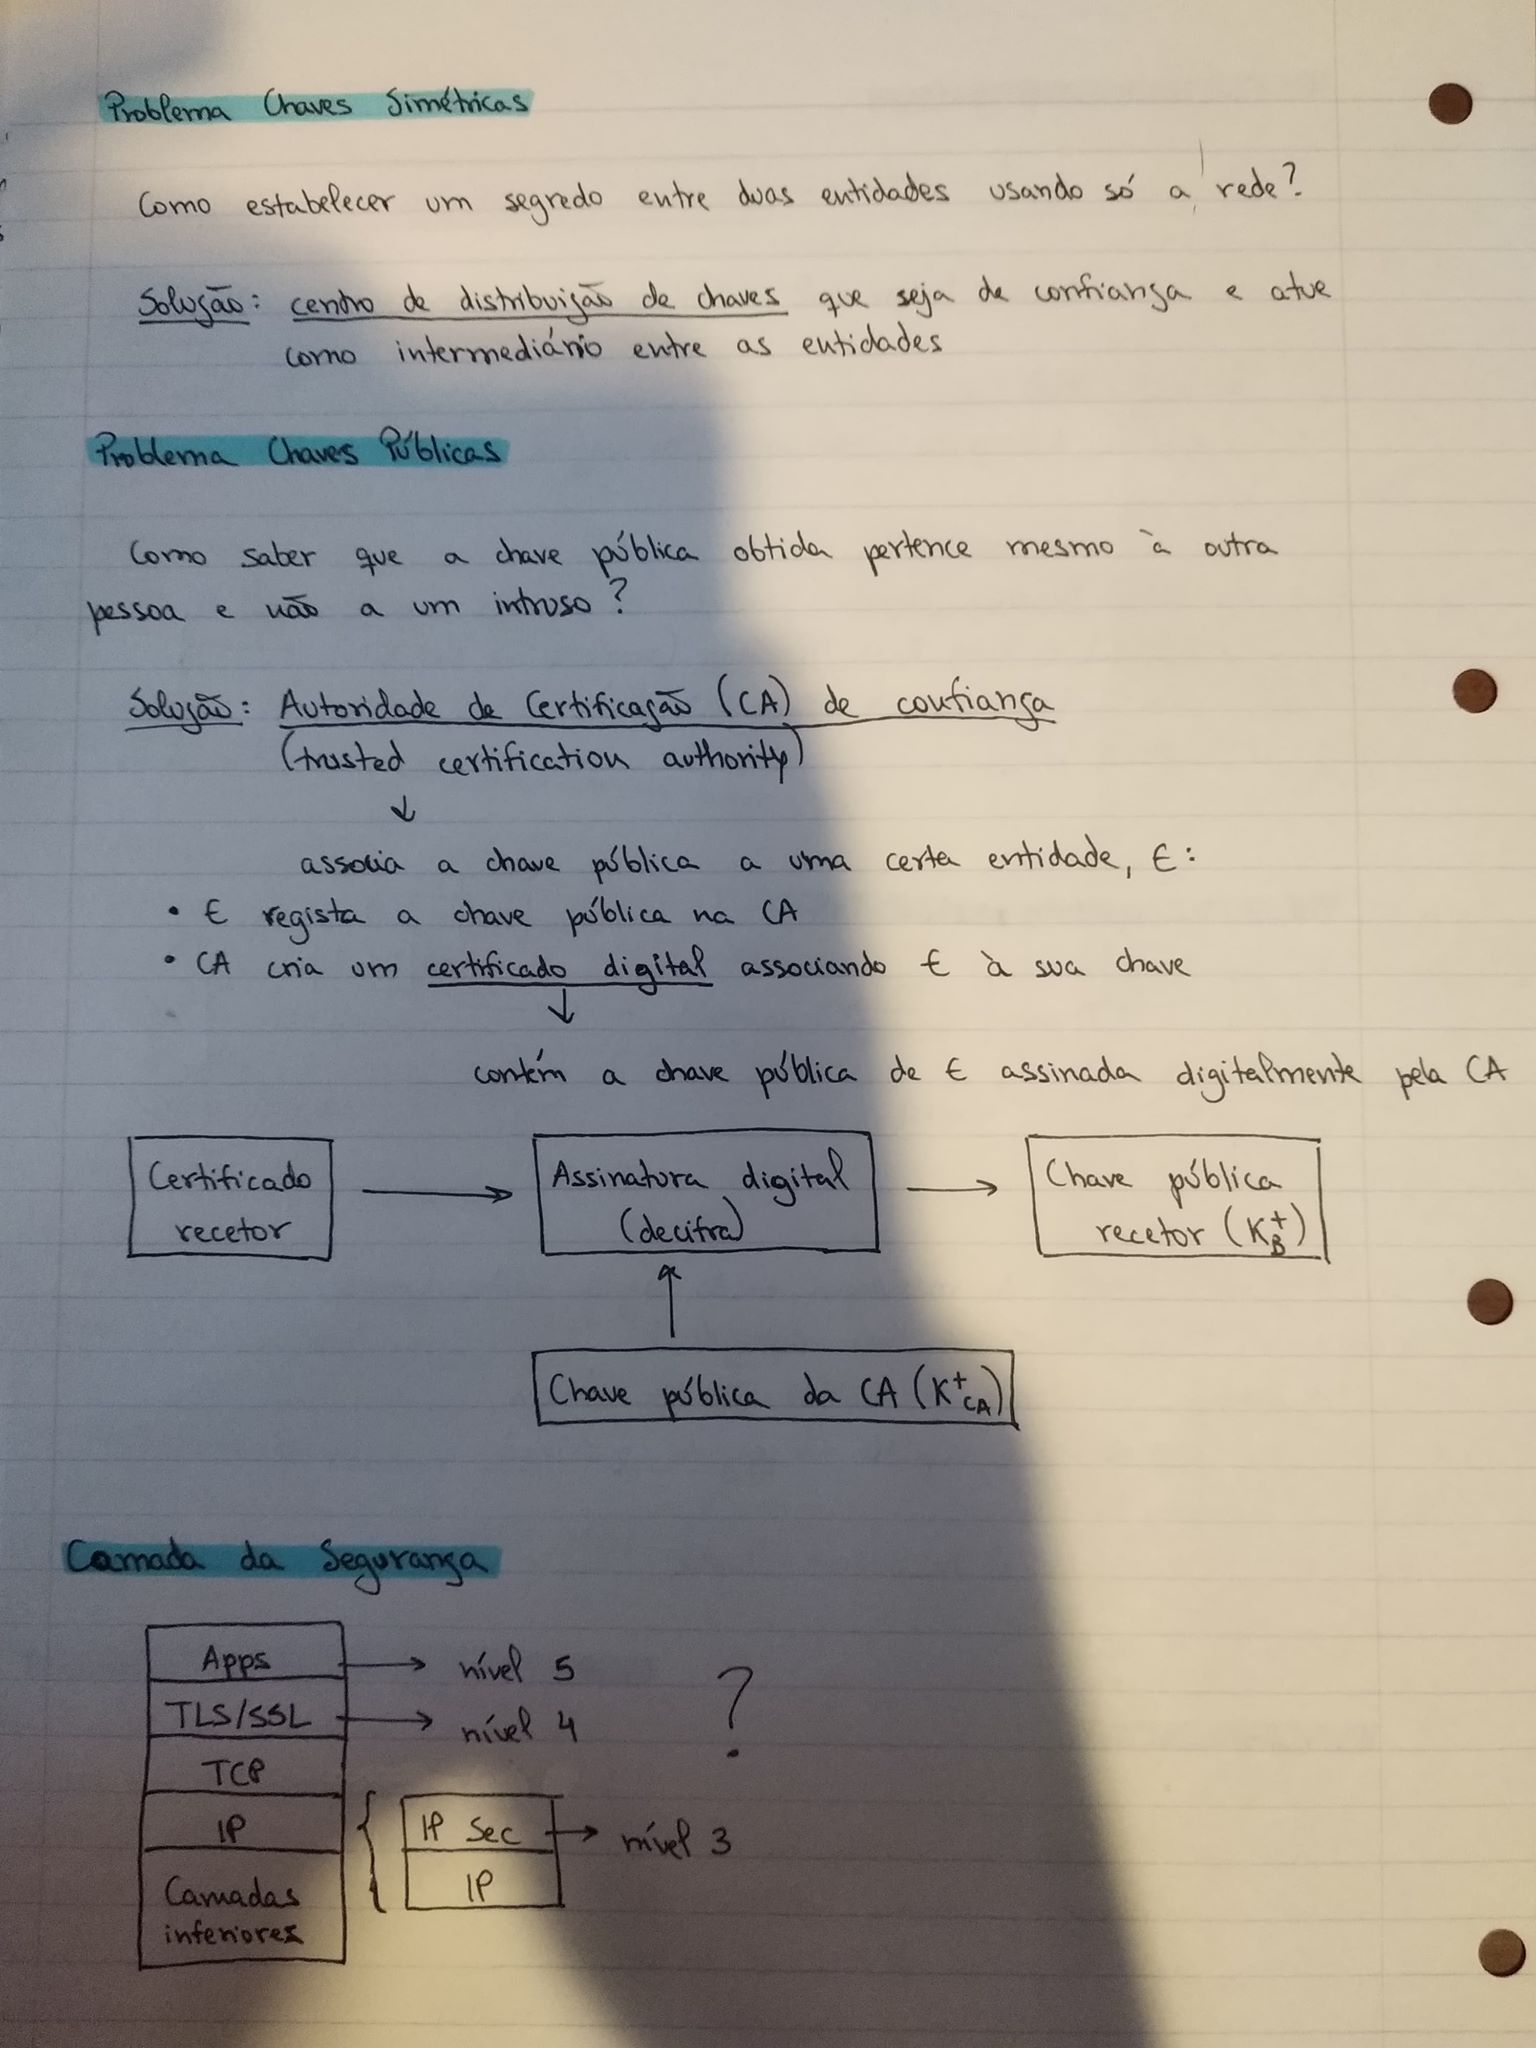 Problema Chaves Simétricas
Como estabelecer um segredo entre duas entidades usando só a rede?
Solução: centro de distribuição de chaves que seja de confiança e atue
como intermediário entre as entidades
Problema Chaves Públicas
Como saber que a chave pública obtida pertence mesmo à outra
pessoa e não a um intruso?
Solução: Autoridade de Certificação (CA) de confiança
(trusted certification authority)
↓
associa a chave pública a uma certa entidade, E:
• E regista a chave pública na CA
• CA cria um certificado digital associando E à sua chave
↓
contém a chave pública de E assinada digitalmente pela CA
Certificado
recetor
Assinatura digital
(decifra)
Chave pública
recetor (K_B^+)
Chave pública da CA (K^+_CA)
Camada da Segurança
Apps → nível 5
TLS/SSL → nível 4
?
TCP
IP
IP Sec → nível 3
IP
Camadas
inferiores